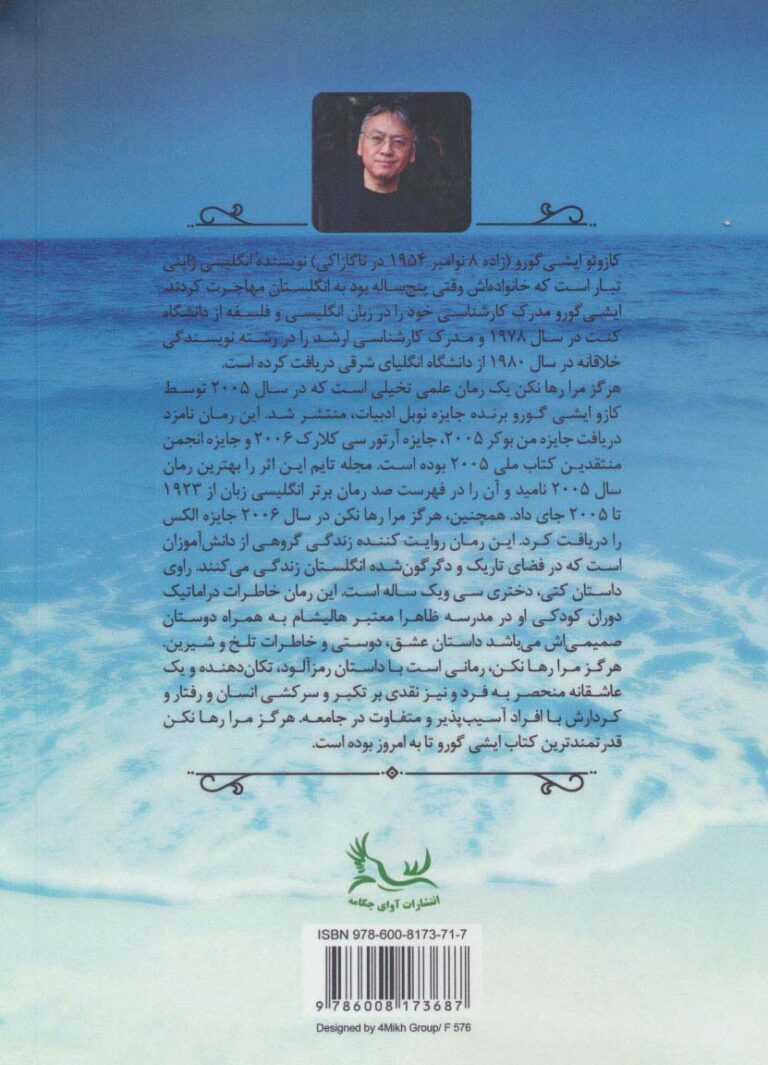 کازوئو ایشی‌گورو (زاده ۸ نوامبر ۱۹۵۴ در ناگازاکی) نویسنده انگلیسی ژاپنی
تبار است که خانواده‌اش وقتی پنج‌ساله بود به انگلستان مهاجرت کردند.
ایشی‌گورو مدرک کارشناسی خود را در زبان انگلیسی و فلسفه از دانشگاه
کنت در سال ۱۹۷۸ و مدرک کارشناسی ارشد را در رشته نویسندگی
خلاقانه در سال ۱۹۸۰ از دانشگاه انگلیای شرقی دریافت کرده است.
هرگز مرا رها نکن یک رمان علمی تخیلی است که در سال ۲۰۰۵ توسط
کازو ایشی گورو برنده جایزه نوبل ادبیات، منتشر شد. این رمان نامزد
دریافت جایزه من بوکر ۲۰۰۵، جایزه آرتور سی کلارک ۲۰۰۶ و جایزه انجمن
منتقدین کتاب ملی ۲۰۰۵ بوده است. مجله تایم این اثر را بهترین رمان
سال ۲۰۰۵ نامید و آن را در فهرست صد رمان برتر انگلیسی زبان از ۱۹۲۳
تا ۲۰۰۵ جای داد. همچنین، هرگز مرا رها نکن در سال ۲۰۰۶ جایزه الکس
را دریافت کرد. این رمان روایت کننده زندگی گروهی از دانش‌آموزان
است که در فضای تاریک و دگرگون‌شده انگلستان زندگی می‌کنند. راوی
داستان کتی، دختری سی ویک ساله است. این رمان خاطرات دراماتیک
دوران کودکی او در مدرسه ظاهرا معتبر هالیشام به همراه دوستان
صمیمی‌اش می‌باشد داستان عشق، دوستی و خاطرات تلخ و شیرین.
هرگز مرا رها نکن، رمانی است با داستان رمزآلود، تکان‌دهنده و یک
عاشقانه منحصر به فرد و نیز نقدی بر تکبر و سرکشی انسان و رفتار و
کردارش با افراد آسیب‌پذیر و متفاوت در جامعه. هرگز مرا رها نکن
قدرتمندترین کتاب ایشی گورو تا به امروز بوده است.
انتشارات آوای چکامه
ISBN 978-600-8173-71-7
9 786008 173687
Designed by 4Mikh Group/ F 576